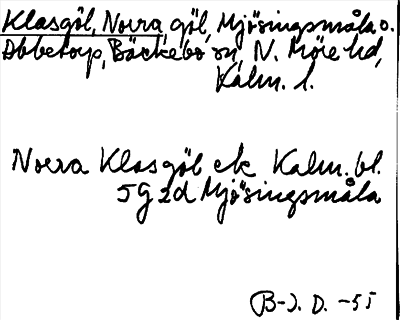 Klasgöl, Norra, göl, Mjösingsmåla o.
Abbetorp, Bäckebo sn, N. Möre hd,
Kalm. l.
Norra Klasgöl ek Kalm. bl.
5G2d Mjösingsmåla
B-J. D. -55